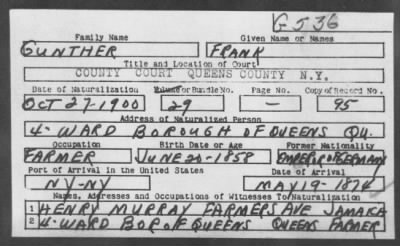 G536
Family Name Given Name or Names
GUNTHER FRANK
Title and Location of Court
COUNTY COURT QUEENS COUNTY N.Y.
Date of Naturalization Volume or Bundle No. Page No. Copy of Record No.
OCT 27-1900 29 — 95
Address of Naturalized Person
4-WARD BOROUGH OF QUEENS QU.
Occupation Birth Date or Age Former Nationality
FARMER JUNE 20-1858 EMPEROR GERMANY
Port of Arrival in the United States Date of Arrival
NY-NY MAY 19-1874
Names, Addresses and Occupations of Witnesses To Naturalization
1 HENRY MURRAY FARMERS AVE JAMAICA
2 4-WARD BOR OF QUEENS QUEENS FARMER